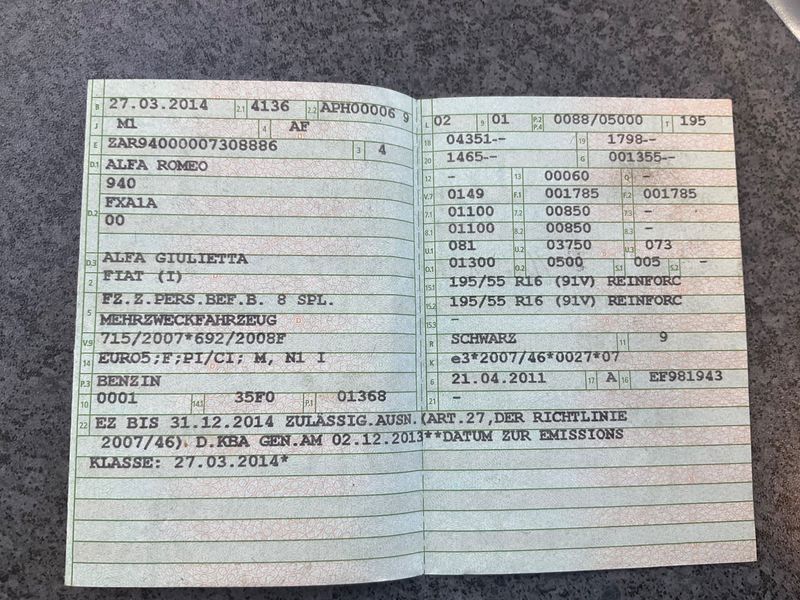 B 27.03.2014 2.1 4136 2.2 APH00006 9
J M1 4 AF
E ZAR94000007308886 3 4
D.1 ALFA ROMEO
940
D.2 FXA1A
00
D.3 ALFA GIULIETTA
2 FIAT (I)
5 FZ.Z.PERS.BEF.B. 8 SPL.
MEHRZWECKFAHRZEUG
V.9 715/2007*692/2008F
14 EURO5;F;PI/CI; M, N1 I
P.3 BENZIN
10 0001 14.1 35F0 P.1 01368
L 02 9 01 P.2 P.4 0088/05000 T 195
18 04351-- 19 1798--
20 1465-- G 001355--
12 - 13 00060 Q -
V.7 0149 F.1 001785 F.2 001785
7.1 01100 7.2 00850 7.3 -
8.1 01100 8.2 00850 8.3 -
U.1 081 U.2 03750 U.3 073
O.1 01300 O.2 0500 S.1 005 S.2 -
15.1 195/55 R16 (91V) REINFORC
15.2 195/55 R16 (91V) REINFORC
15.3 -
R SCHWARZ 11 9
K e3*2007/46*0027*07
6 21.04.2011 17 A 16 EF981943
21 -
22 EZ BIS 31.12.2014 ZULÄSSIG.AUSN.(ART.27,DER RICHTLINIE
2007/46). D.KBA GEN.AM 02.12.2013**DATUM ZUR EMISSIONS
KLASSE: 27.03.2014*